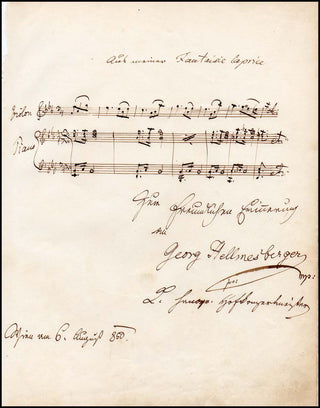 Aus meiner Fantaisie Caprice
Violon
Piano
Zur freundlichen Erinnerung
an
Georg Hellmesberger
K. hannov. Hofkonzertmeister
Wien am 6. August 850.